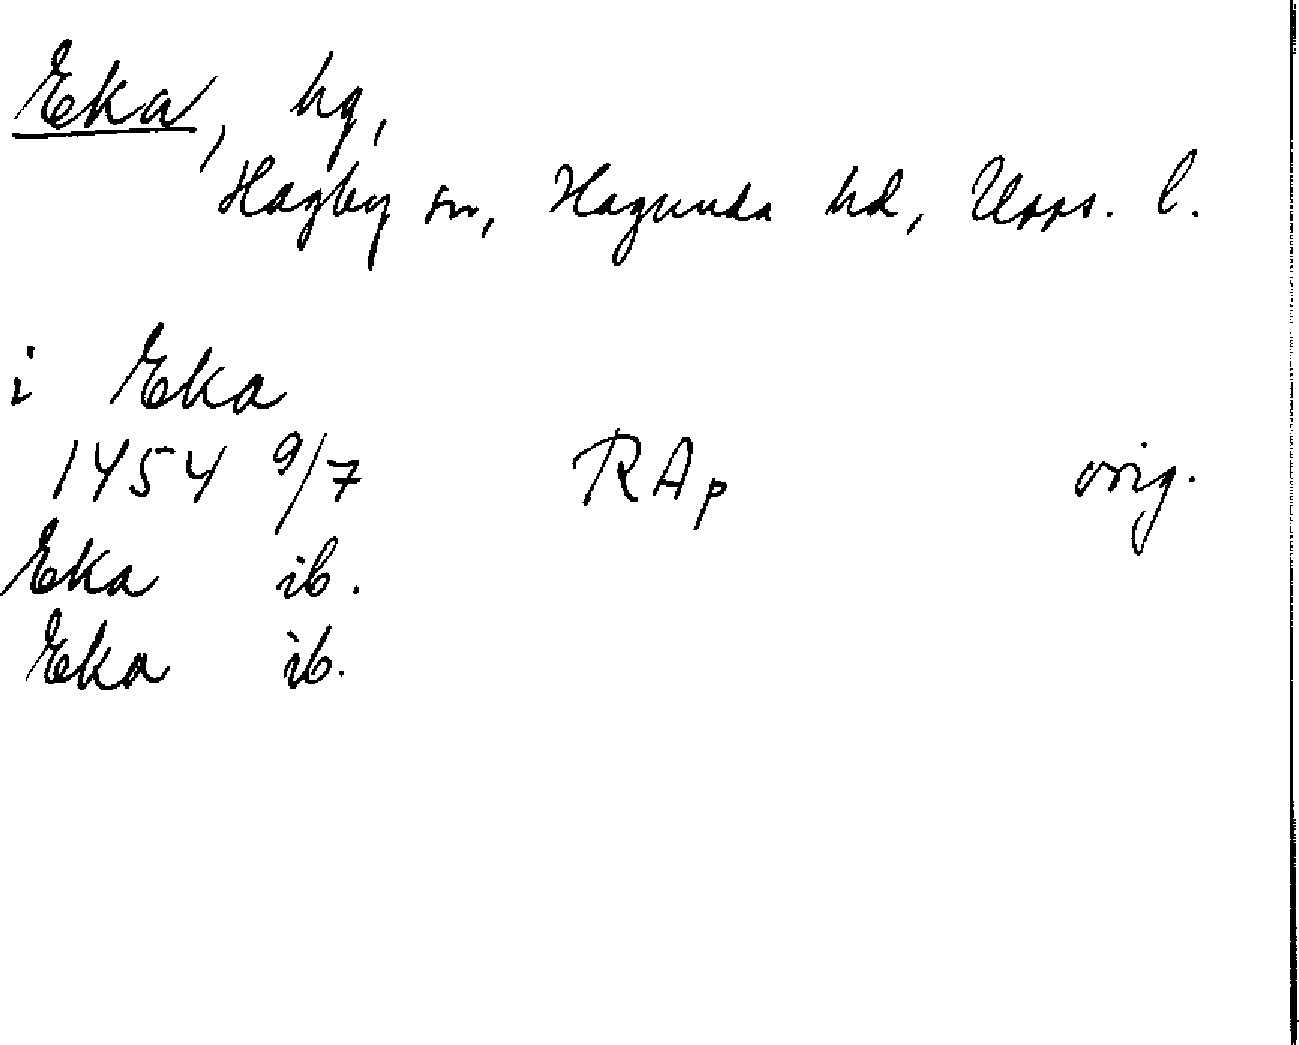 Eka, hg,
Hagby sn, Hagunda hd, Upps. l.
i Eka
1454 9/7 RAp orig.
Eka ib.
Eka ib.